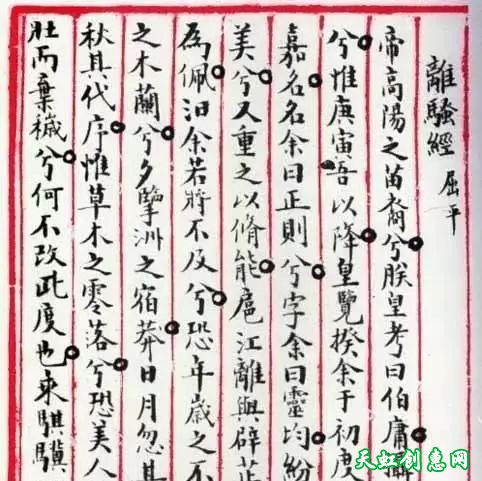 離騷經 屈平
帝高陽之苗裔兮朕皇考曰伯庸攝
兮惟庚寅吾以降皇覽揆余于初度
嘉名名余曰正則兮字余曰靈均紛
美兮又重之以脩能扈江離與辟芷
為佩汩余若將不及兮恐年歲之不
之木蘭兮夕擥洲之宿莽日月忽其
秋其代序惟草木之零落兮恐美人
壯而棄穢兮何不改此度也乘騏驥
天虹创意网